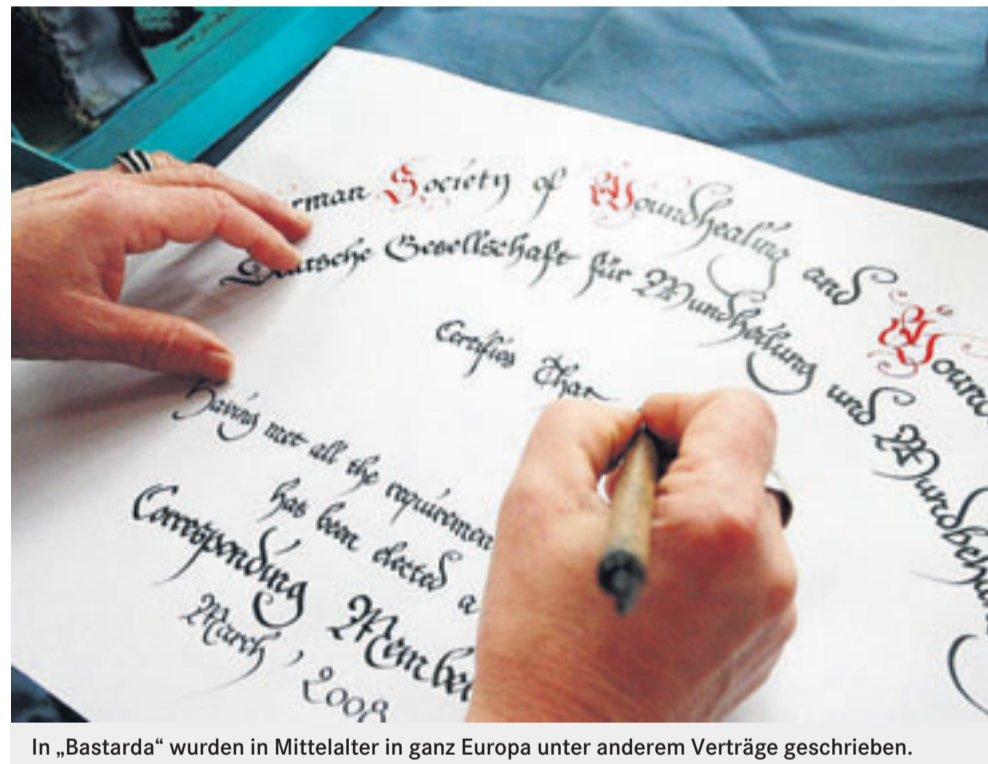 rman Society of Woundhealing and Wound
Deutsche Gesellschaft für Wundheilung und Wundbehan
Certifies That
Having met all the requiremen
has been elected a
Corresponding Membe
March, 2008
In „Bastarda“ wurden in Mittelalter in ganz Europa unter anderem Verträge geschrieben.